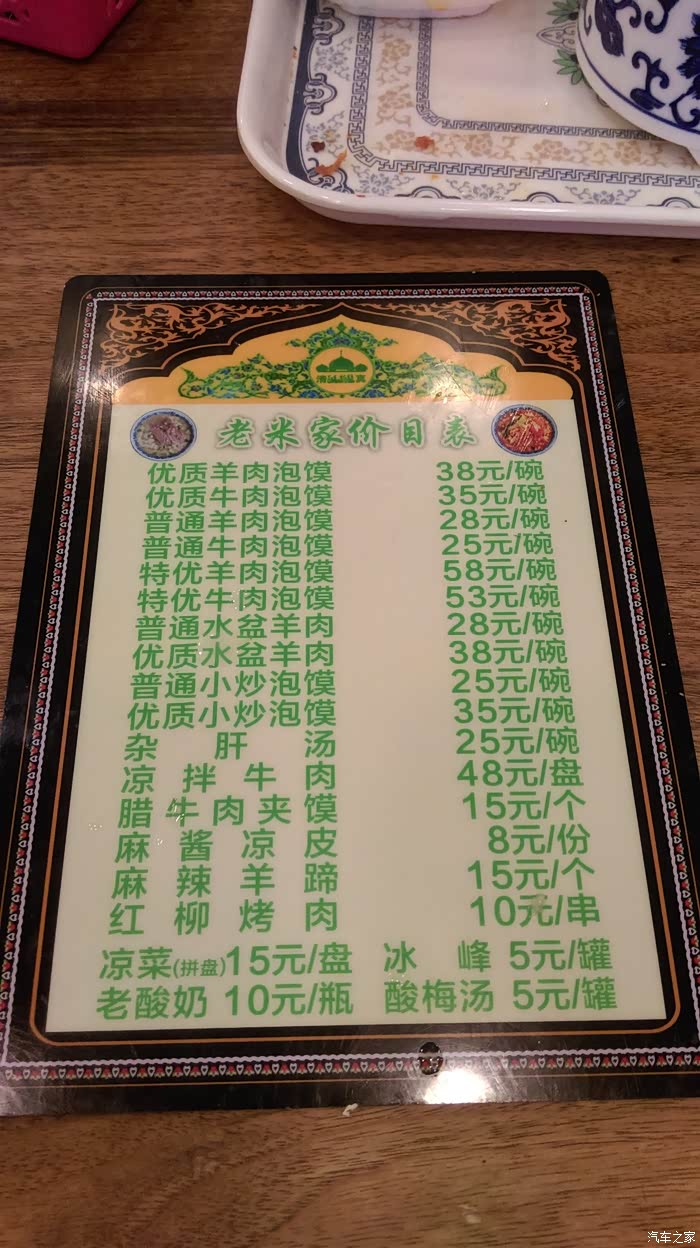 老米家价目表
优质羊肉泡馍 38元/碗
优质牛肉泡馍 35元/碗
普通羊肉泡馍 28元/碗
普通牛肉泡馍 25元/碗
特优羊肉泡馍 58元/碗
特优牛肉泡馍 53元/碗
普通水盆羊肉 28元/碗
优质水盆羊肉 38元/碗
普通小炒泡馍 25元/碗
优质小炒泡馍 35元/碗
杂肝汤 25元/碗
凉拌牛肉 48元/盘
腊牛肉夹馍 15元/个
麻酱凉皮 8元/份
麻辣羊蹄 15元/个
红柳烤肉 10元/串
凉菜(拼盘)15元/盘 冰峰 5元/罐
老酸奶 10元/瓶 酸梅汤 5元/罐
汽车之家